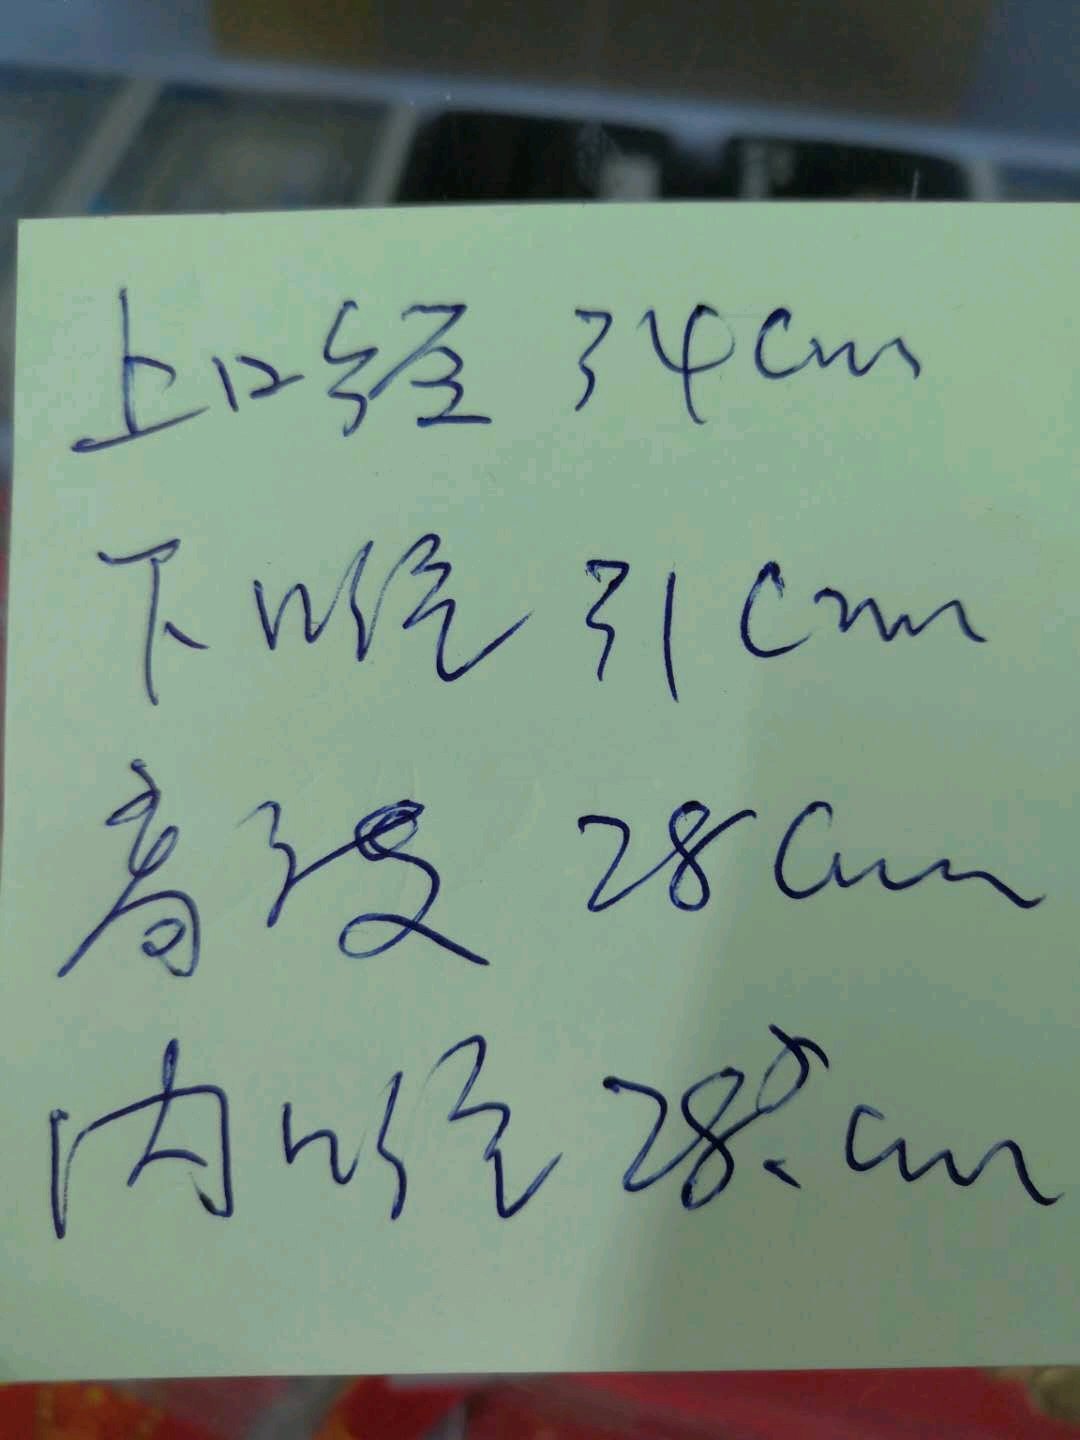 上口经 34cm
下口经 31cm
高度 28cm
内口经 28.8cm